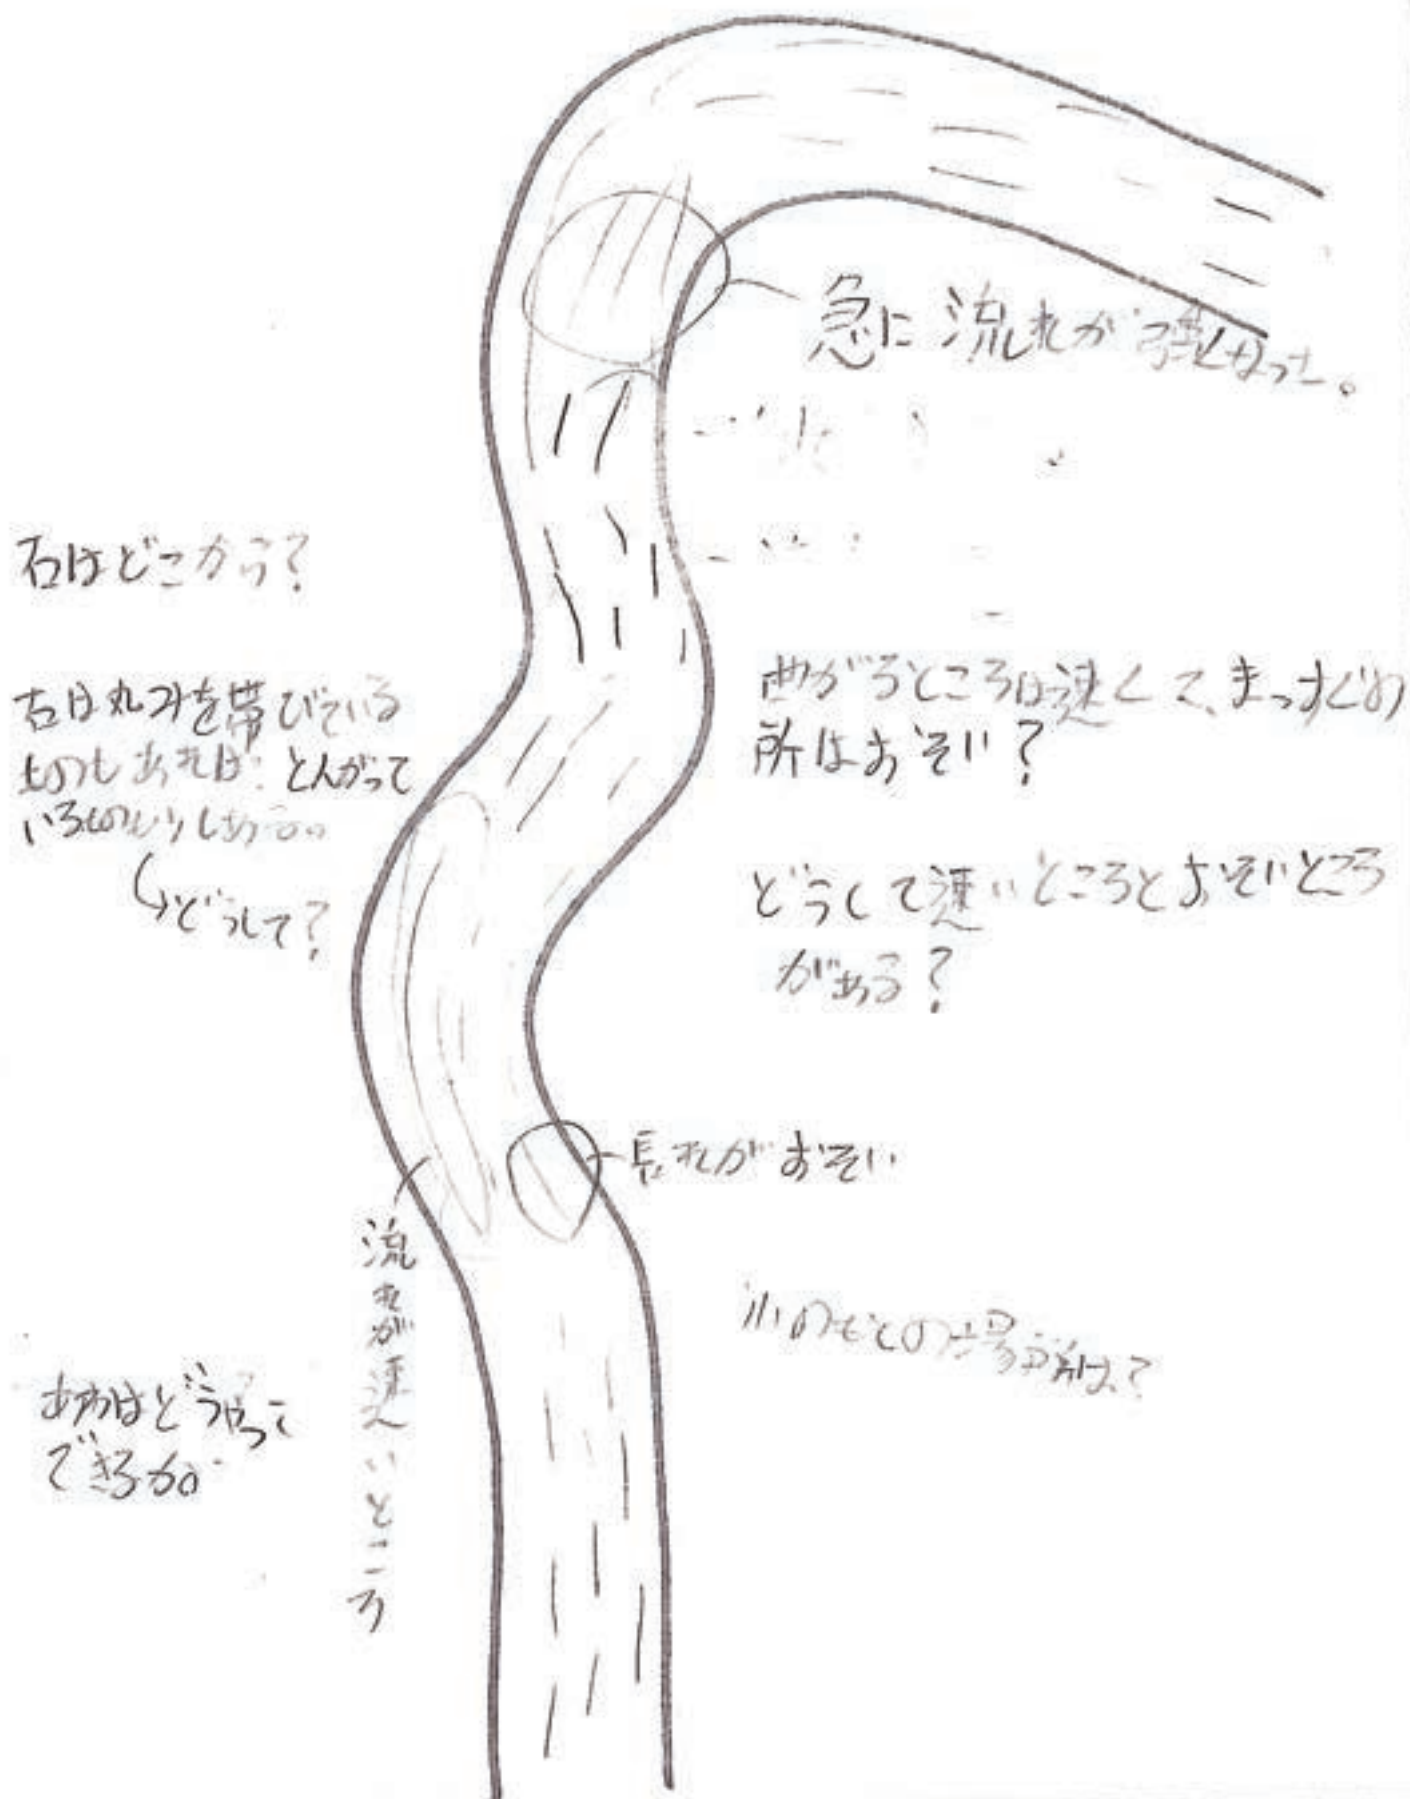 急に流れが強くなった。
石はどこから?
石は丸みを帯びている
ものもあれば、とんがって
いるものもある。
どうして?
曲がるところは速くて、まっすぐの
所はおそい?
どうして速いところとおそいところ
がある?
流れがおそい
流れが速いところ
川のもとの場所は?
あわはどうやって
できるか